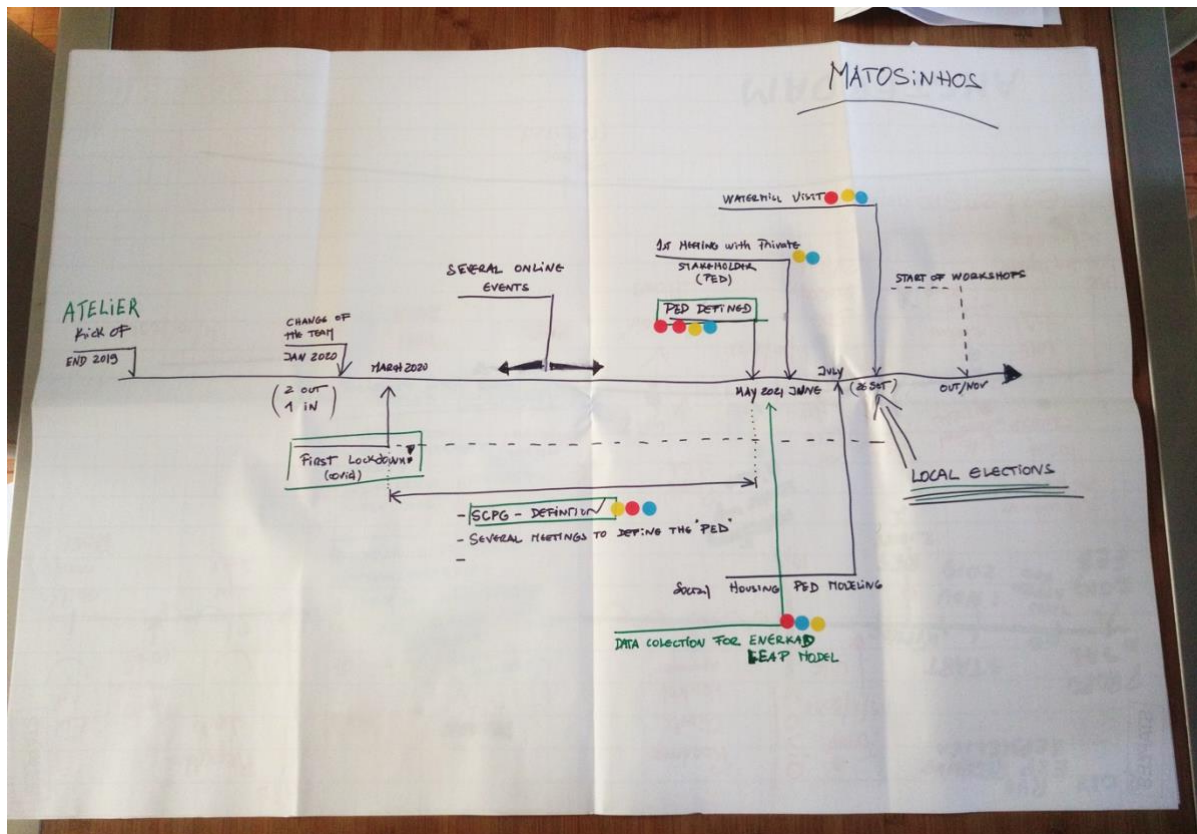 MATOSINHOS
WATERMILL VISIT
1st MEETING with Private
STAKEHOLDER
(PED)
SEVERAL ONLINE
EVENTS
START OF WORKSHOPS
ATELIER
Kick OF
END 2019
CHANGE OF
THE TEAM
JAN 2020
PED DEFINED
MARCH 2020
JULY
(2 OUT
1 IN)
MAY 2021 JUNE
(26 SET)
OUT/NOV
FIRST LOCKDOWN!
(covid)
LOCAL ELECTIONS
- SCPG - DEFINITION
- SEVERAL MEETINGS TO DEFINE THE "PED"
-
Social HOUSING PED MODELING
DATA COLECTION FOR ENERKAD
LEAP MODEL